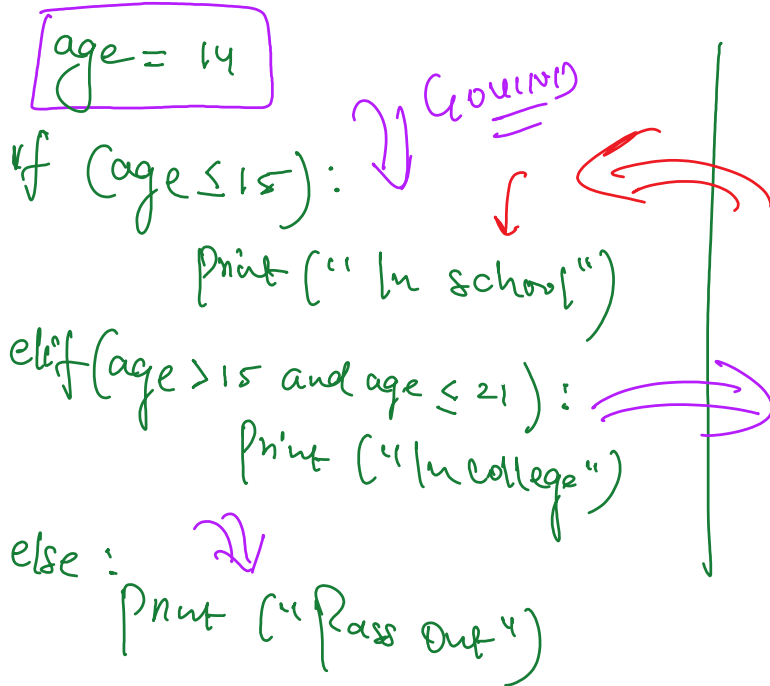 age = 14
GOVIND
if (age ≤ 15):
Print ("In school")
elif (age > 15 and age ≤ 21):
Print ("In college")
else:
Print ("Pass Out")